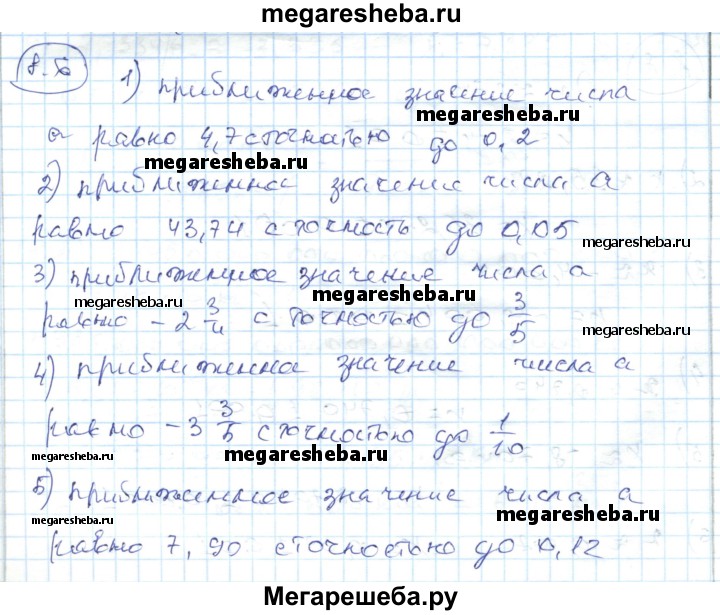 megaresheba.ru
8.5
1) приближенное значение числа
а равно 4,7 с точностью до 0,2
megaresheba.ru
megaresheba.ru
2) приближенное значение числа а
равно 43,74 с точность до 0,05
megaresheba.ru
3) приближенное значение числа а
megaresheba.ru
megaresheba.ru
равно - 2 3/4 с точностью до 3/5
megaresheba.ru
4) приближенна значение числа а
равно - 3 3/5 с точностью до 1/10
megaresheba.ru
megaresheba.ru
5) приближенное значение числа а
megaresheba.ru
megaresheba.ru
равно 7, до с точностью до 0,12
Мегарешеба.ру